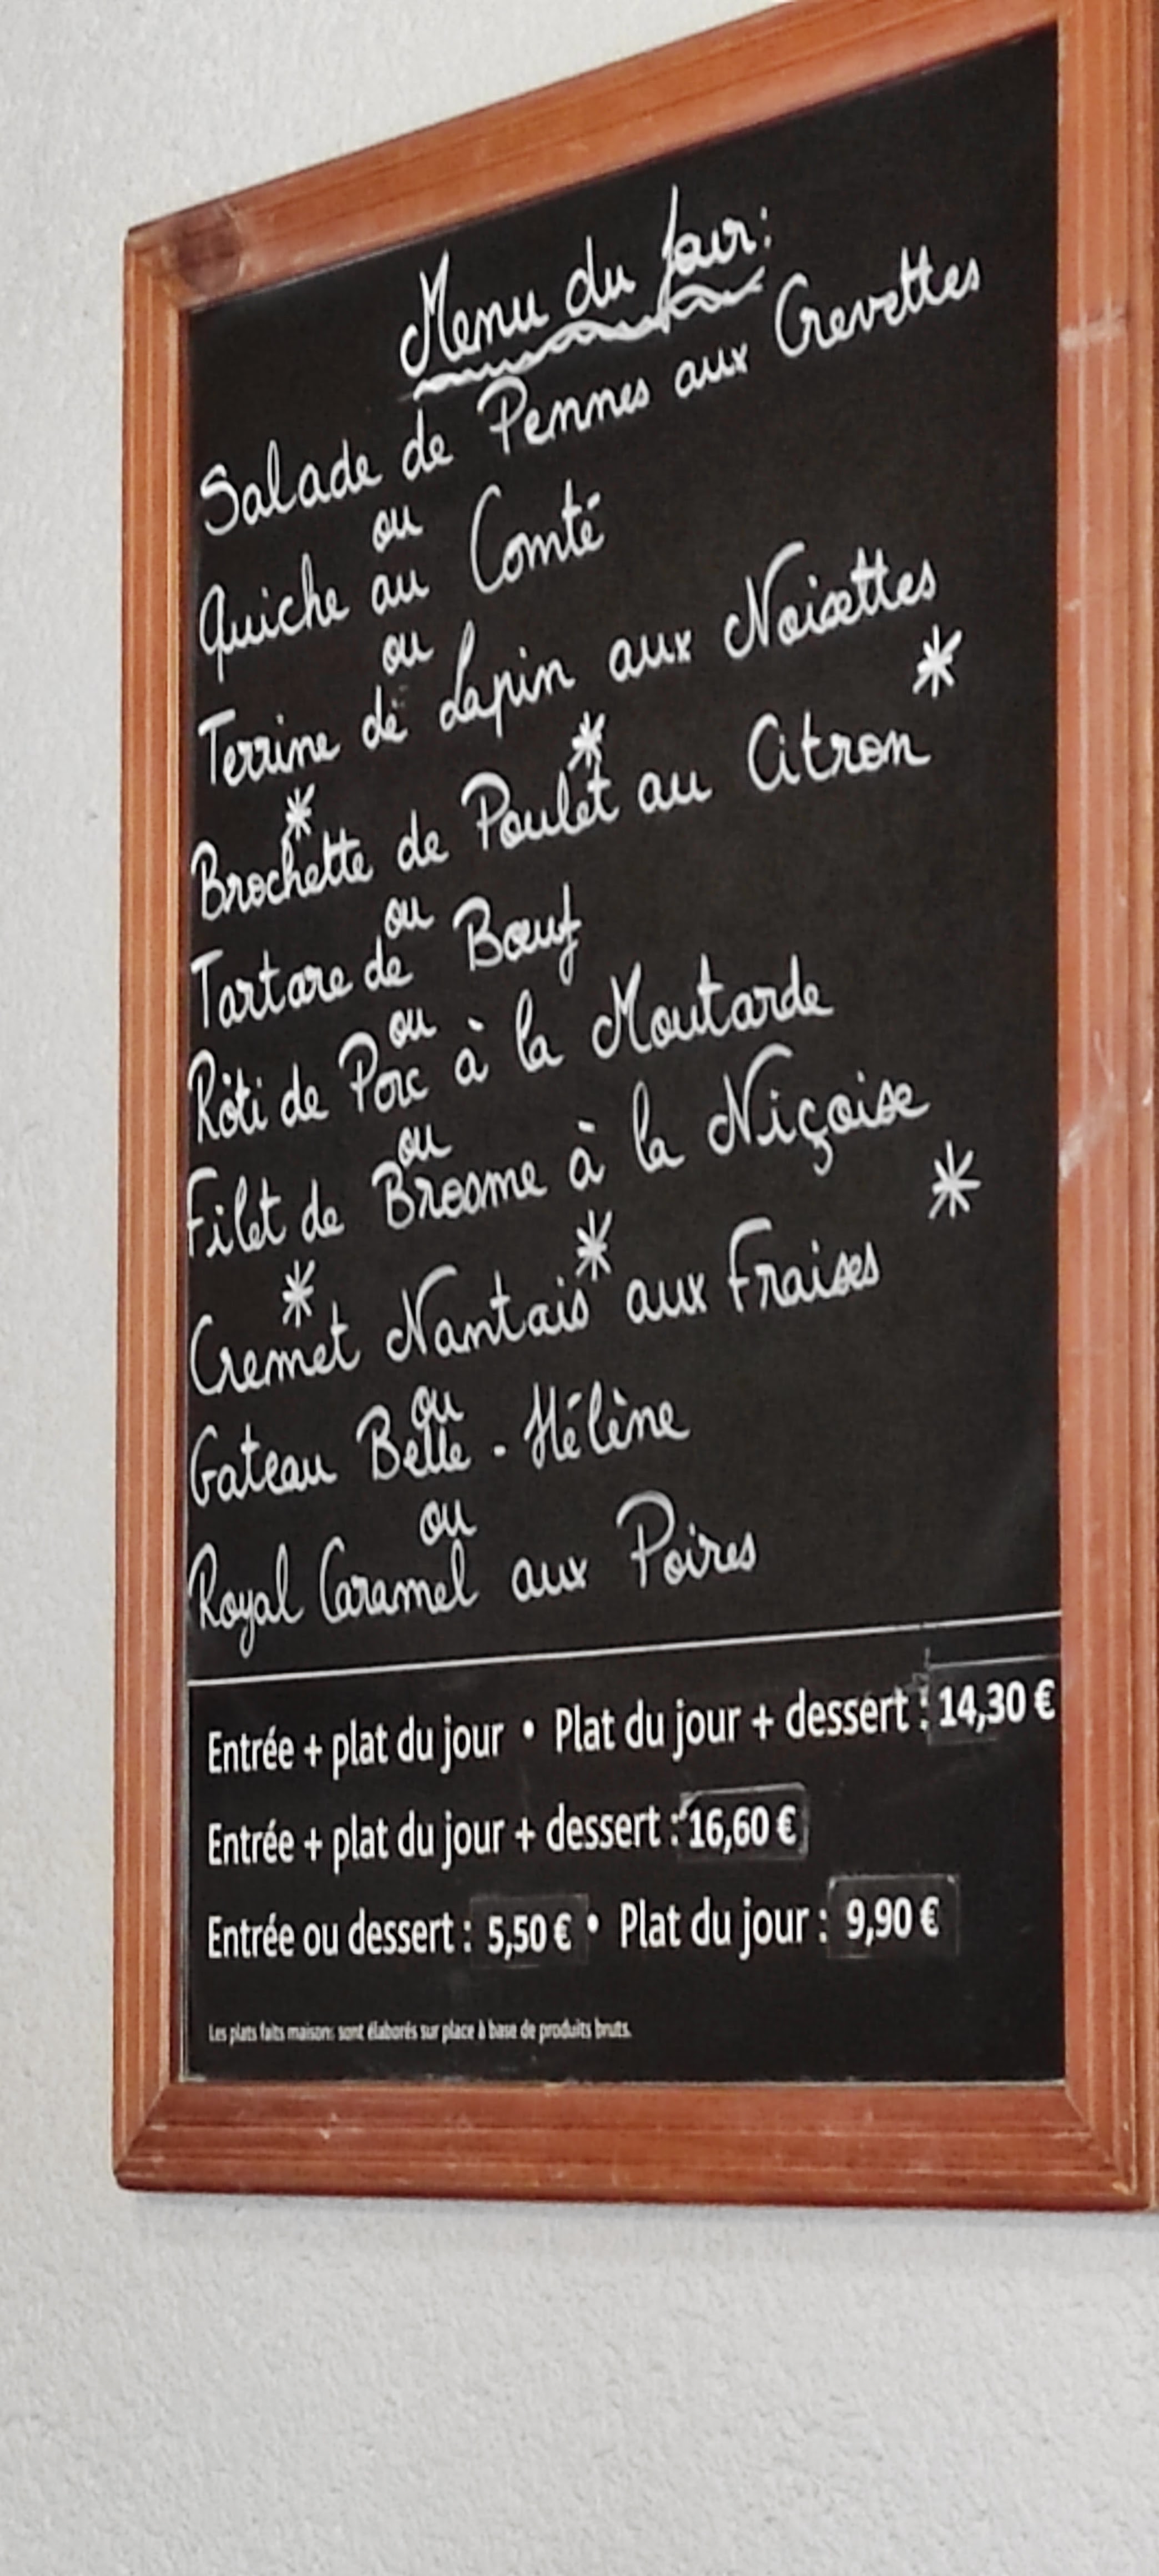 Menu du Jour:
Salade de Pennes aux Crevettes
ou
Quiche au Comté
ou
Terrine de Lapin aux Noisettes
* * *
Brochette de Poulet au Citron
ou
Tartare de Bœuf
ou
Rôti de Porc à la Moutarde
ou
Filet de Brosme à la Niçoise
* * *
Cremet Nantais aux Fraises
ou
Gateau Belle-Hélène
ou
Royal Caramel aux Poires
Entrée + plat du jour • Plat du jour + dessert : 14,30 €
Entrée + plat du jour + dessert : 16,60 €
Entrée ou dessert : 5,50 € • Plat du jour : 9,90 €
Les plats faits maisons sont élaborés sur place à base de produits bruts.